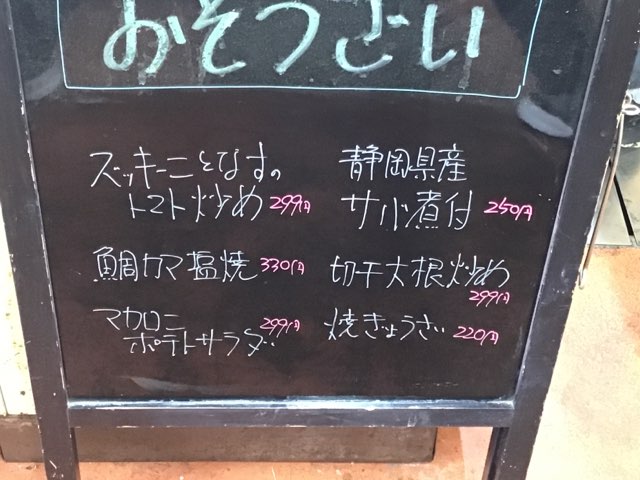 おそうざい
ズッキーニとなすの
トマト炒め 299円
鯛カマ塩焼 330円
マカロニ
ポテトサラダ 299円
静岡県産
サバ煮付 250円
切干大根炒め
299円
焼きょうざ 220円